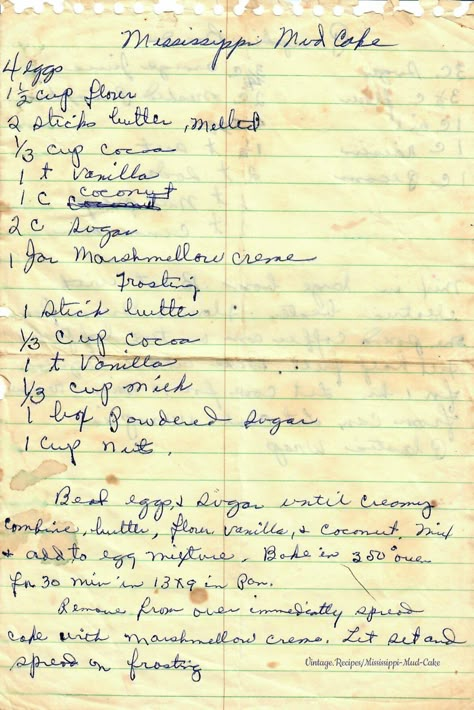 Mississippi Mud Cake
4 eggs
1 1/2 cup flour
2 sticks butter, melted
1/3 cup cocoa
1 t vanilla
1 c coconut
2 c sugar
1 jar Marshmellow creme
Frosting
1 stick butter
1/3 cup cocoa
1 t vanilla
1/3 cup milk
1 box Powdered sugar
1 cup nuts.
Beat eggs & sugar until creamy
combine, butter, flour, vanilla, & coconut. Mix
& add to egg mixture. Bake in 350° oven
for 30 min in 13x9 in Pan.
Remove from oven immediatly spread
cake with marshmellow creme. Let set and
spread on frosting
Vintage.Recipes/Mississippi-Mud-Cake